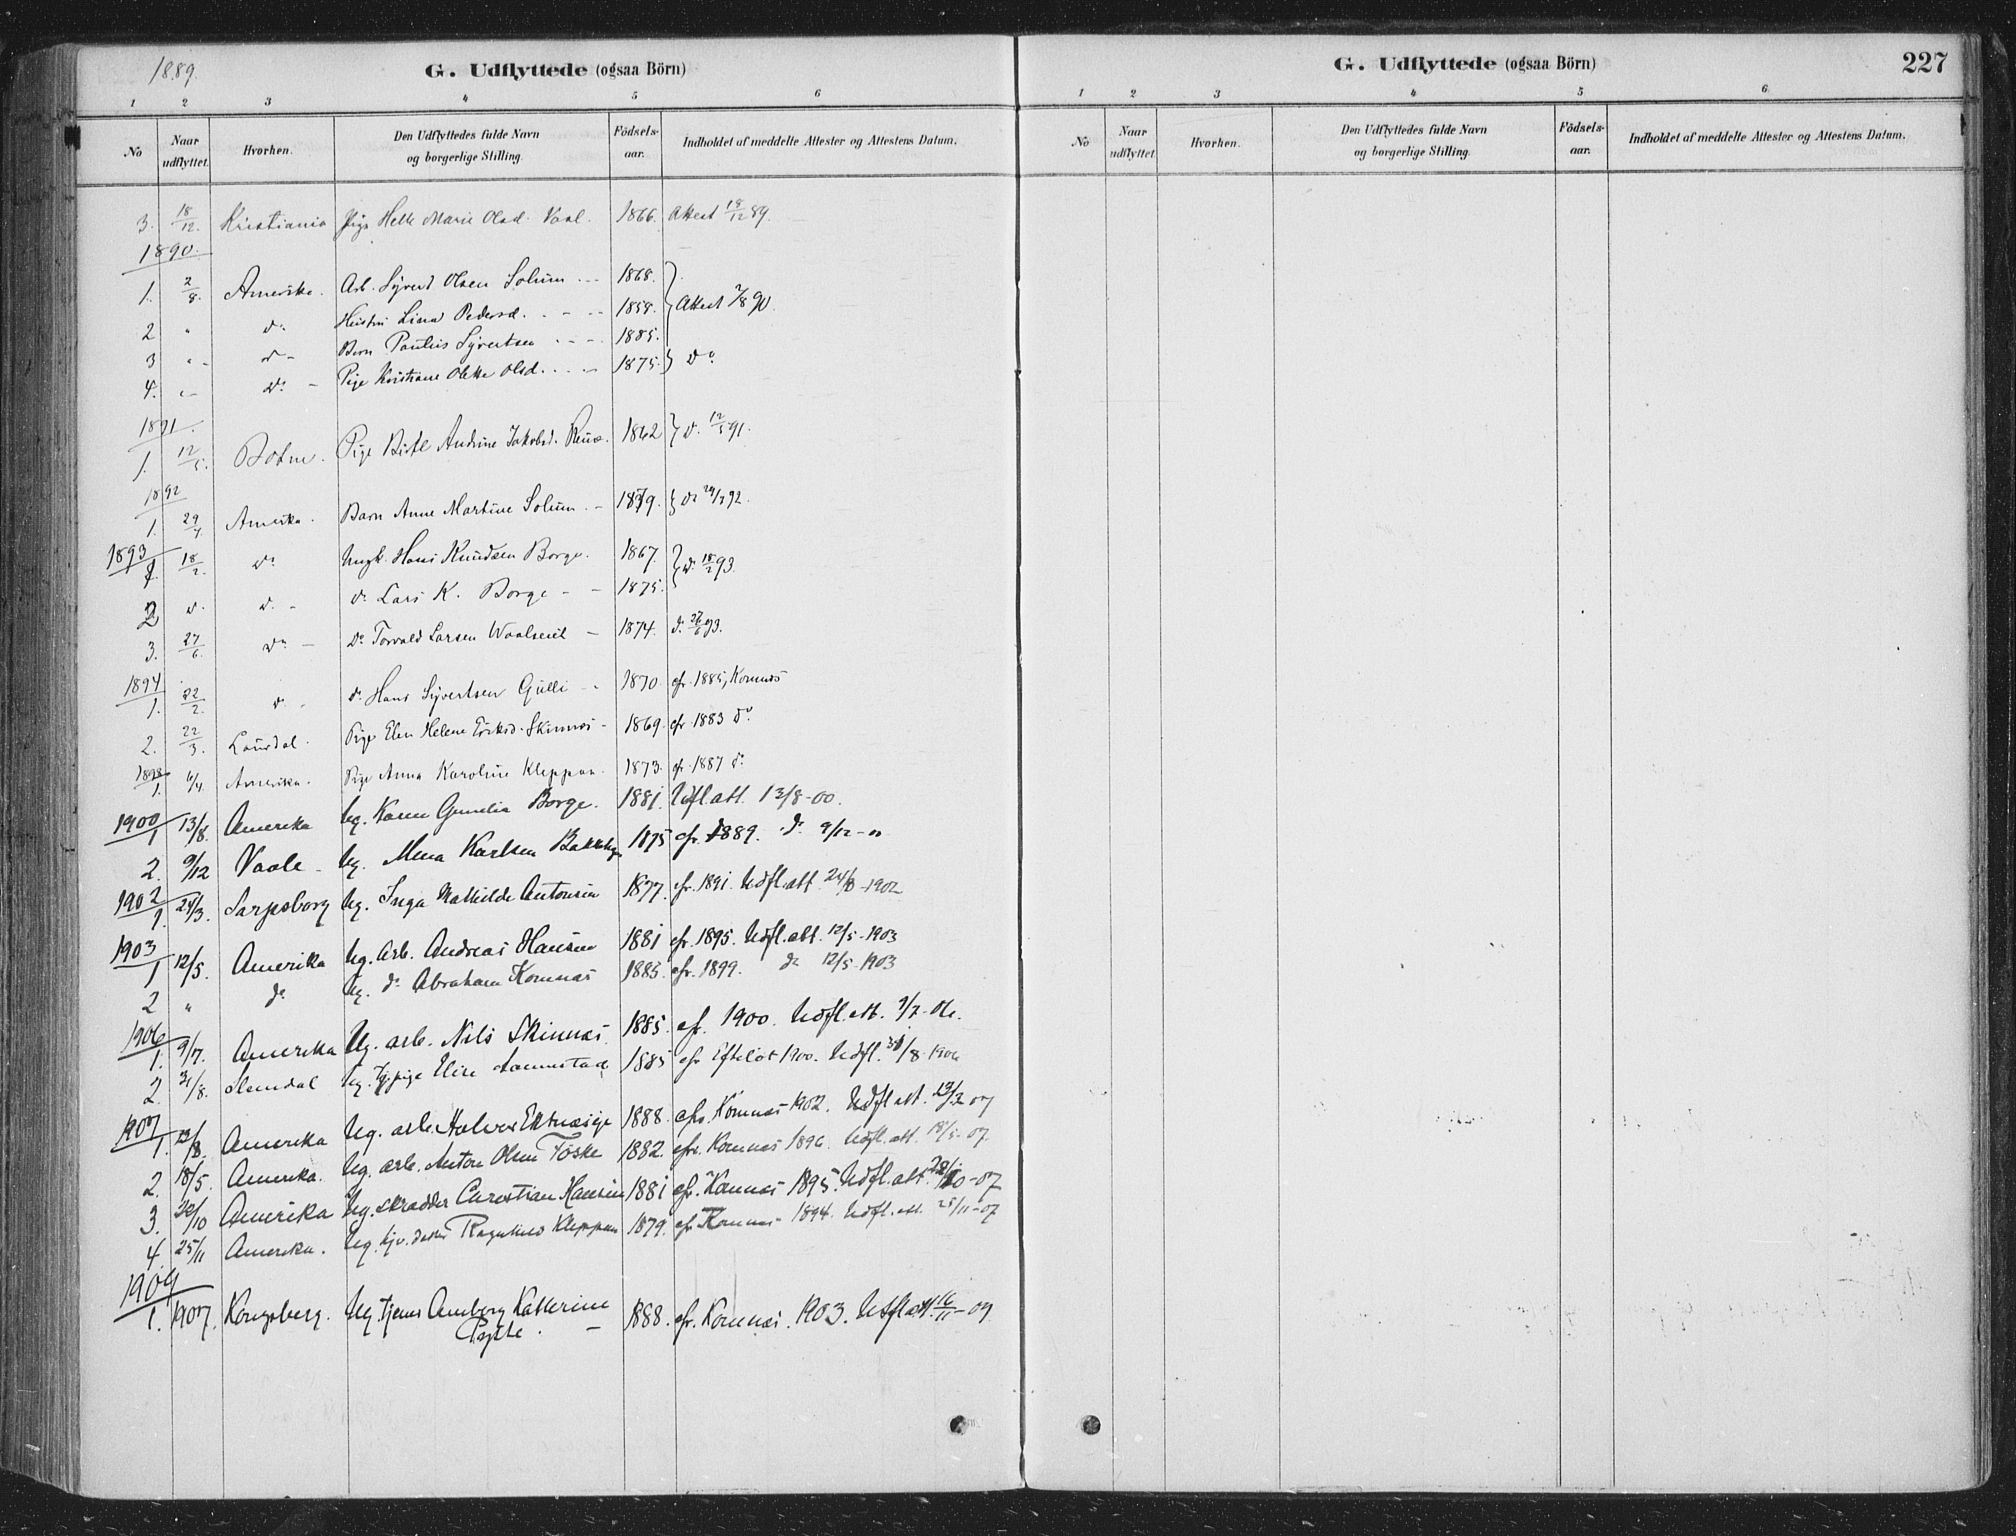 1889.
G. Udflyttede (ogsaa Börn)
1 2 3 4 5 6
No Naar udflyttet. Hvorhen. Den Udflyttedes fulde Navn og borgerlige Stilling. Födsels-aar. Indholdet af meddelte Attester og Attestens Datum.
3. 18/12. Kristiania Pige Helle Marie Olsd. Vaal. 1866. Attest 18/12 89.
1890.
1. 2/8. Amerika. Arb. Syvert Olsen Solum 1868. Attest 2/8 90
2 " do Hustru Lina Pedersd. 1859.
3 " do Barn Paulus Syvertsen 1885.
4. " do Pige Kristiane Olette Olsd. 1875. do
1891.
1. 12/5. Botne. Pige Andrine Jakobsd. 1862 do 12/5 91.
1892
1. 29/4. Amerika. Barn Anne Martine Solum 1879. do 29/4 92.
1893
1. 18/2. do Ungk. Hans Knudsen Borge. 1867. do 18/2 93.
2 do do do Lars K. Borge 1875.
3. 27/6. do do Torvald Larsen 1874. do 27/6 93.
1894
1. 22/2. do do Hans Syvertsen Gulli 1870 cfr. 1885, Komnæs
2. 22/3. Laurdal. Pige Elen Helene Eriksd. Skinnæs 1869. cfr. 1883 do
1898
1. 6/4. Amerika. Pige Anna Karoline Kleppan. 1873. cfr. 1887 do
1900
1 13/8. Amerika Ug. Karen Gunelia Borge. 1881. Udfl.att. 13/8-00.
2. 9/12 Vaale Ug. Mena Karlsen 1875 cfr. 1889. do 9/12-00
1902
1. 24/3. Sarpsborg Ug. Inga Mathilde Antonsen 1877. cfr. 1891. Udfl.att. 24/3-1902
1903
1 12/5. Amerika Ug. Arb. Andreas Hansen 1881 cfr. 1895. Udfl.att. 12/5-1903
2 " do Ug. do Abraham Komnæs 1885. cfr. 1899. do 12/5-1903
1906
1. 9/7. Amerika Ug. arb. Nils Skinnæs. 1885. cfr. 1900. Udfl.att. 9/7-06.
2. 31/8. Slemdal Ug. Elise 1885 cfr Efteløt 1900. Udfl. 31/8-1906
1907
1. Amerika Ug. arb. Halvor 1888. cfr. Komnæs 1902. Udfl.att. 07
2. 18/5. Amerika. Ug. arb. Anton Olsen Foske 1882. cfr. Komnæs 1896. Udfl.att. 18/5-07.
3. 22/10 Amerika Ug. skrædder Christian Hansen 1881 cfr. Komnæs 1895. Udfl.att. 22/10-07
4. 25/11 Amerika. Ug. Ragnhild Kleppan 1879. cfr Komnæs 1894. Udfl.att. 25/11-07
1909
1. 1907. Kongsberg. Ug. tjener Annborg Katherine 1888. cfr. Komnæs. 1903. Utfl.att 16/11-09
227
G. Udflyttede (ogsaa Börn)
1 2 3 4 5 6
No Naar udflyttet Hvorhen. Den Udflyttedes fulde Navn og borgerlige Stilling. Födsels-aar. Indholdet af meddelte Attester og Attestens Datum.